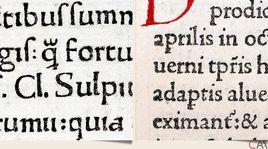 ctibus summ
gis: q̃ fortu
. Cl. Sulpi
tumii: quia
D prodic
aprilis in oc
uerni tpr̃is h
adaptis alue
eximant᷑: & a